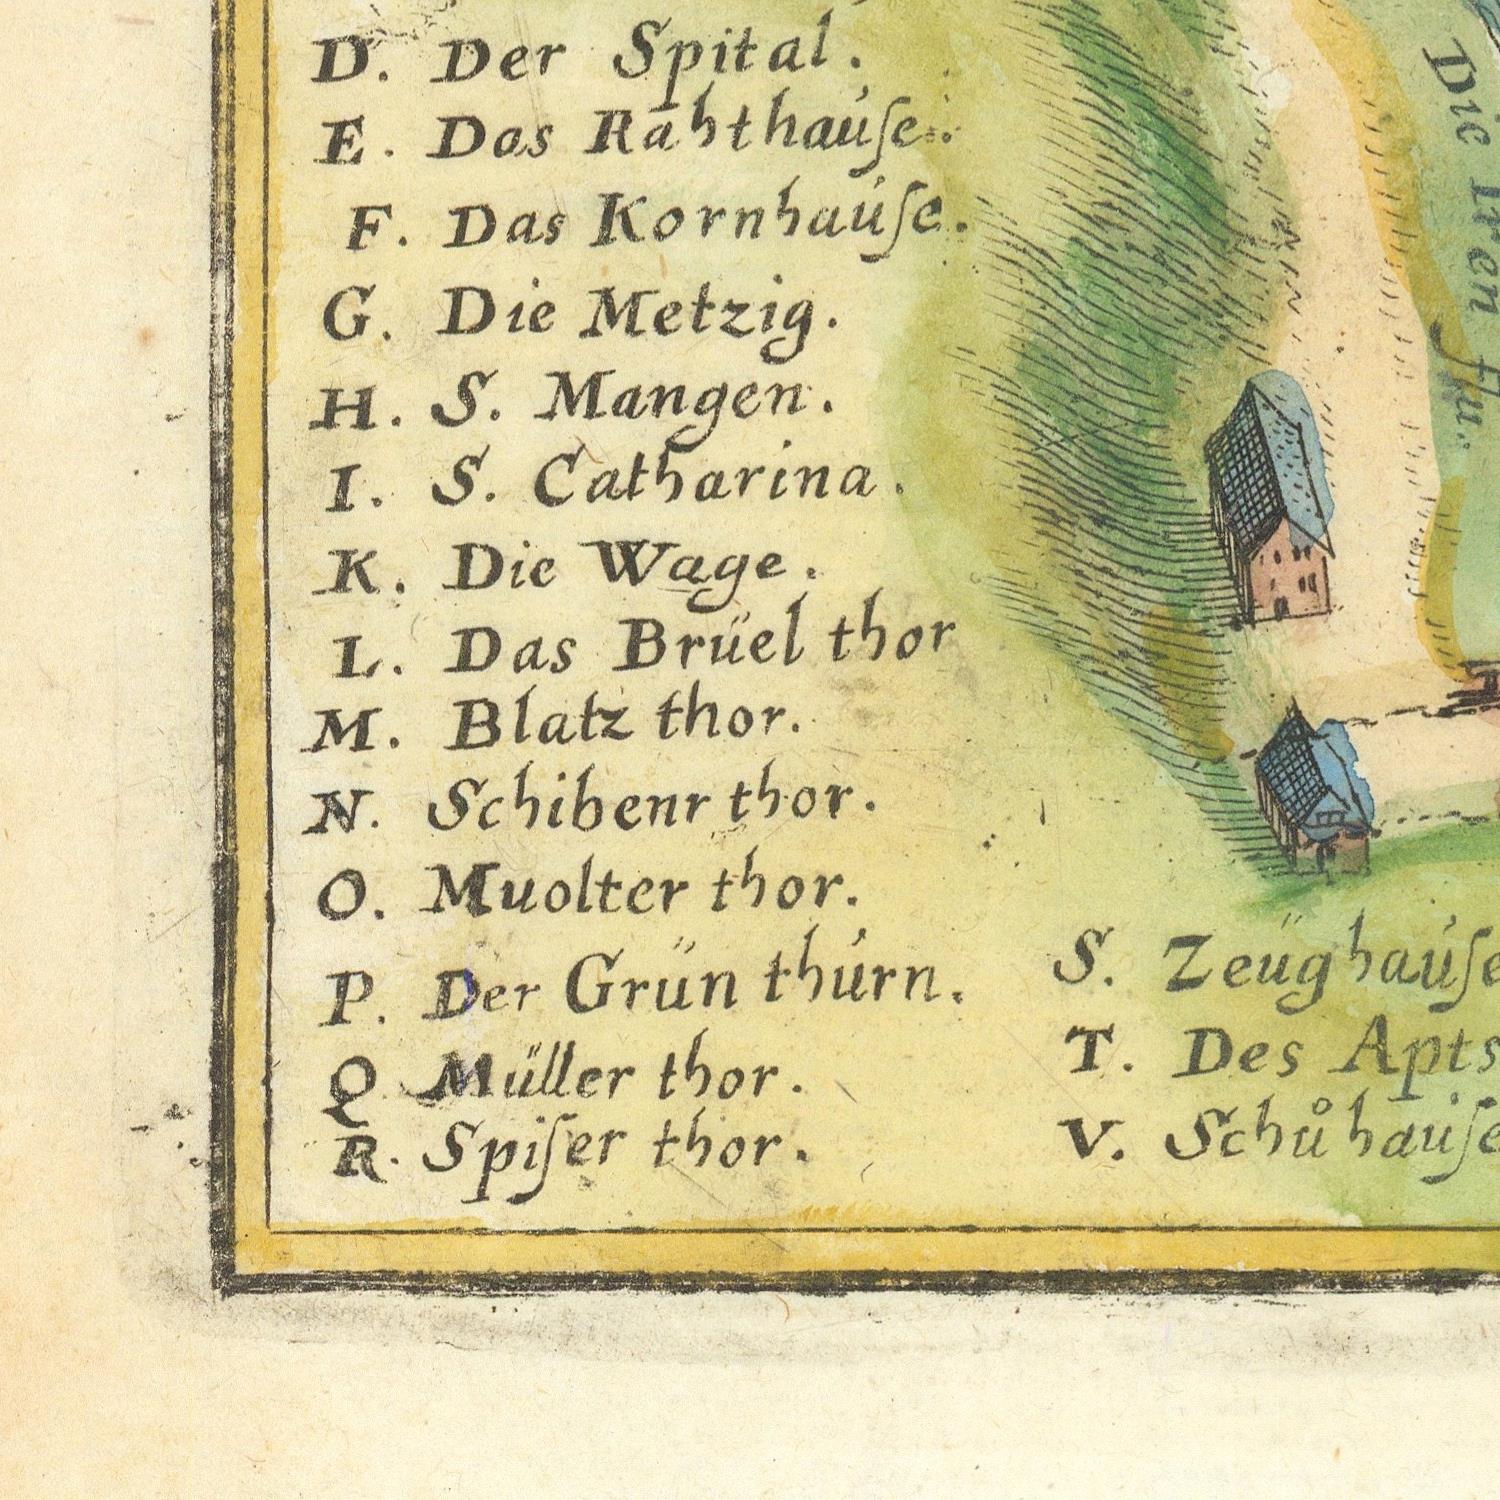 D. Der Spital.
E. Das Rahthauſe.
F. Das Kornhauſe.
G. Die Metzig.
H. S. Mangen.
I. S. Catharina.
K. Die Wage.
L. Das Brüel thor
M. Blatz thor.
N. Schibenr thor.
O. Muolter thor.
P. Der Grün thurn.
Q Müller thor.
R. Spiſer thor.
S. Zeüghauſe
T. Des Apts
V. Schůhauſe
Die Iren flu: